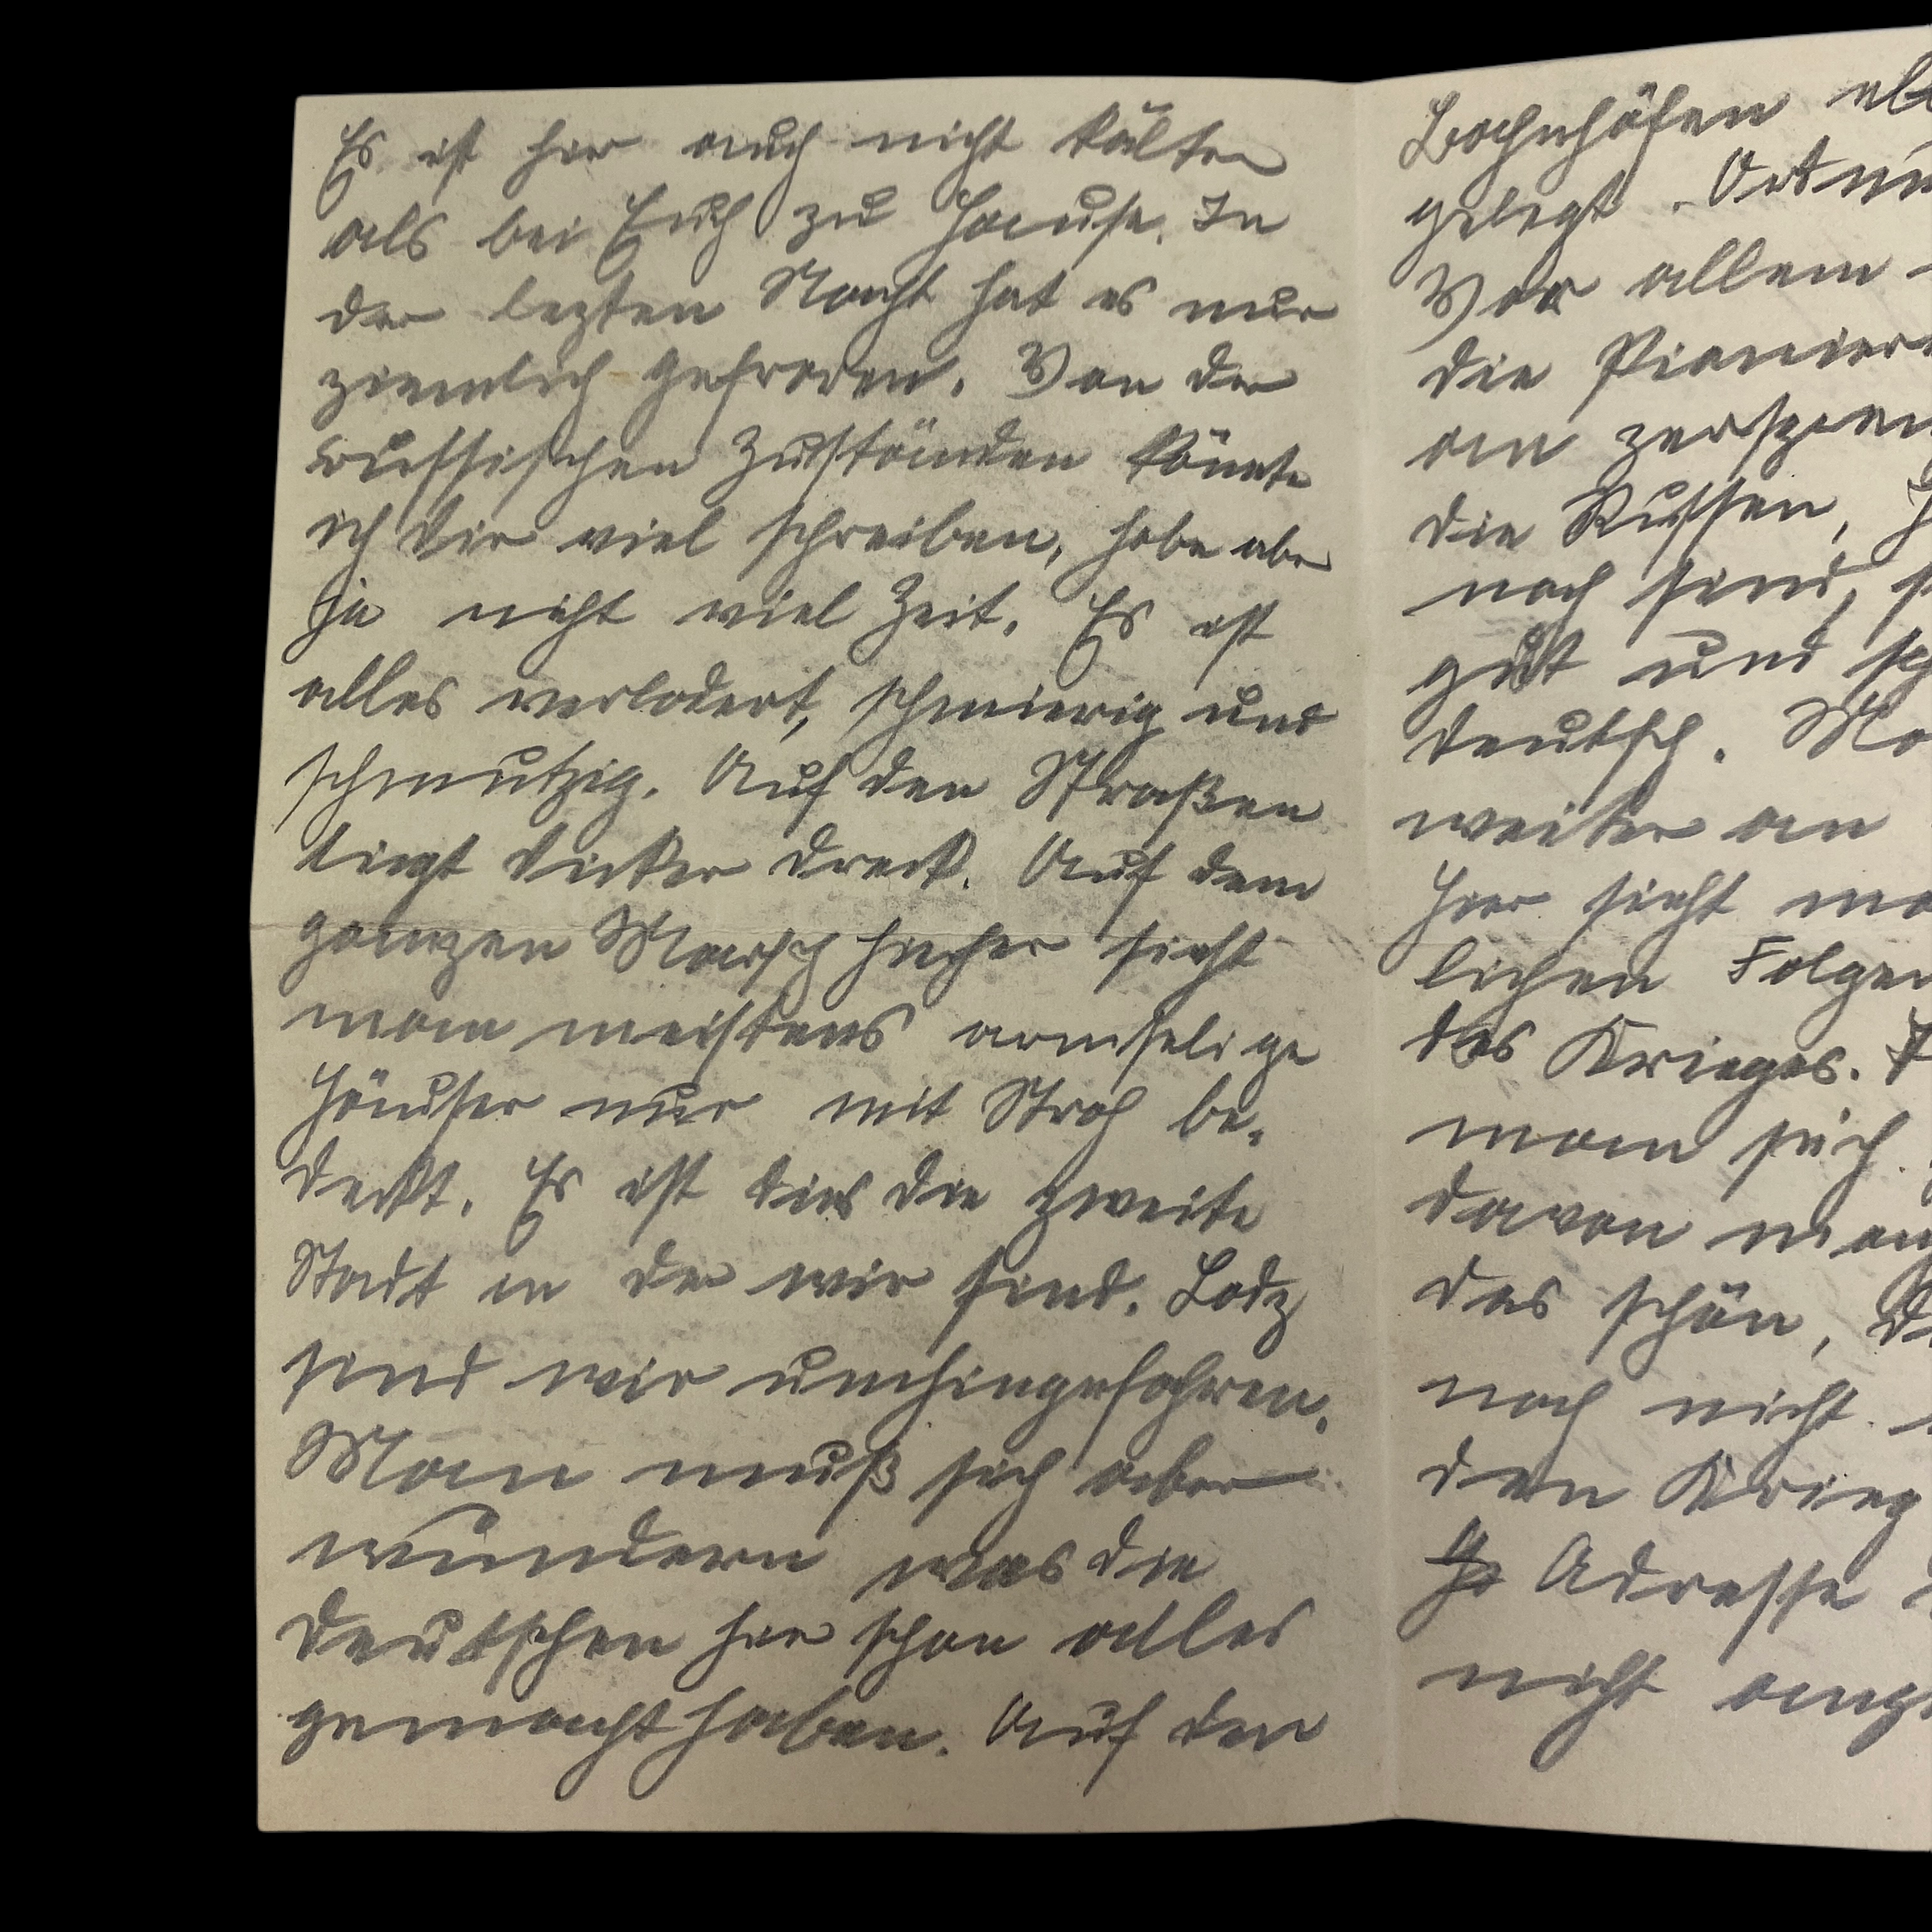 Es ist hier auch nicht kälter
als bei Euch zu Hause. In
der lezten Nacht hat es nur
ziemlich gefroren. Von den
russischen Zuständen könnte
ich dir viel schreiben, habe aber
ja nicht viel Zeit. Es ist
alles verlodert, schmierig und
schmutzig. Auf den Straßen
liegt dicker Dreck. Auf dem
ganzen Marsch hieher sieht
man meistens armselige
Häuser nur mit Stroh be-
deckt. Es ist dies die zweite
Stadt in der wir sind. Lodz
sind wir umhingefahren.
Man muß sich aber
wundern was die
Deutschen hier schon alles
gemacht haben. Auf den
Bahnhöfen
gelegt.
Vor allem
die Pionier
an
die Russen,
noch sind,
gut und
deutsch.
weiter an
Hier sieht
lichen Folgen
des Krieges.
man sich
davon
das schön,
noch nicht
den Krieg
Adresse
nicht